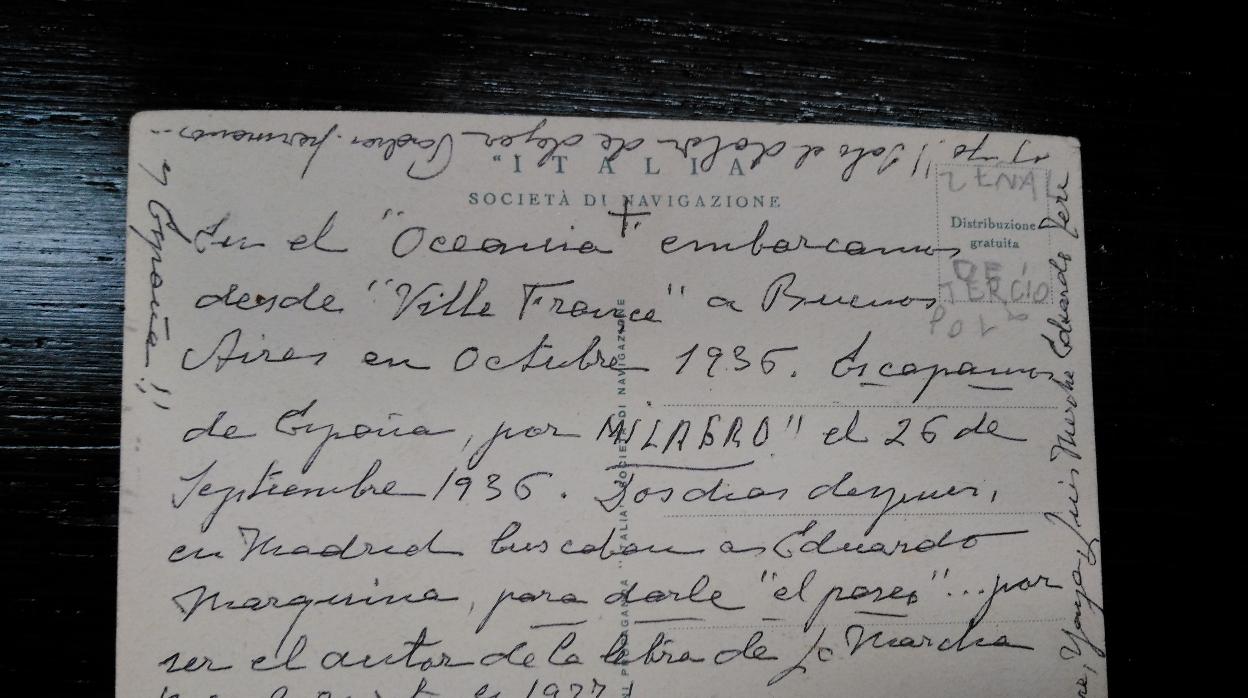 "ITALIA
SOCIETÀ DI NAVIGAZIONE
Distribuzione
gratuita
ZENAL
DE
TERCIO
POL
En el "Oceania" embarcamos
desde "Ville France" a Buenos
Aires en Octubre 1936. Escapamos
de España, por MILAGRO" el 26 de
Septiembre 1936. Dos dias despues,
en Madrid buscaban a Eduardo
Marquina, para darle "el paseo"... por
ser el autor de la letra de la Marcha
y yo!! Solo el dolor de dejar Padres hermanos...
y España!!
Luis Eduardo Pere